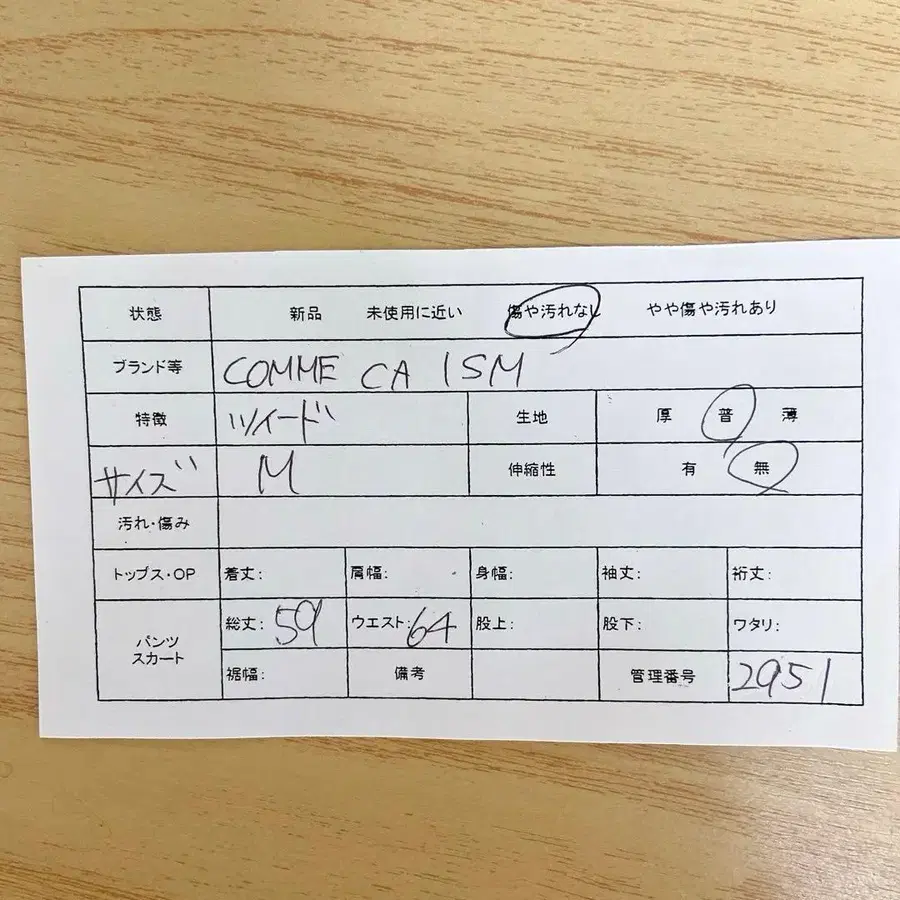 状態 新品 未使用に近い 傷や汚れなし やや傷や汚れあり
ブランド等 COMME CA ISM
特徴 ツイード 生地 厚 普 薄
サイズ M 伸縮性 有 無
汚れ・傷み
トップス・OP 着丈: 肩幅: 身幅: 袖丈: 裄丈:
パンツ スカート 総丈: 59 ウエスト: 64 股上: 股下: ワタリ:
裾幅: 備考 管理番号 2951